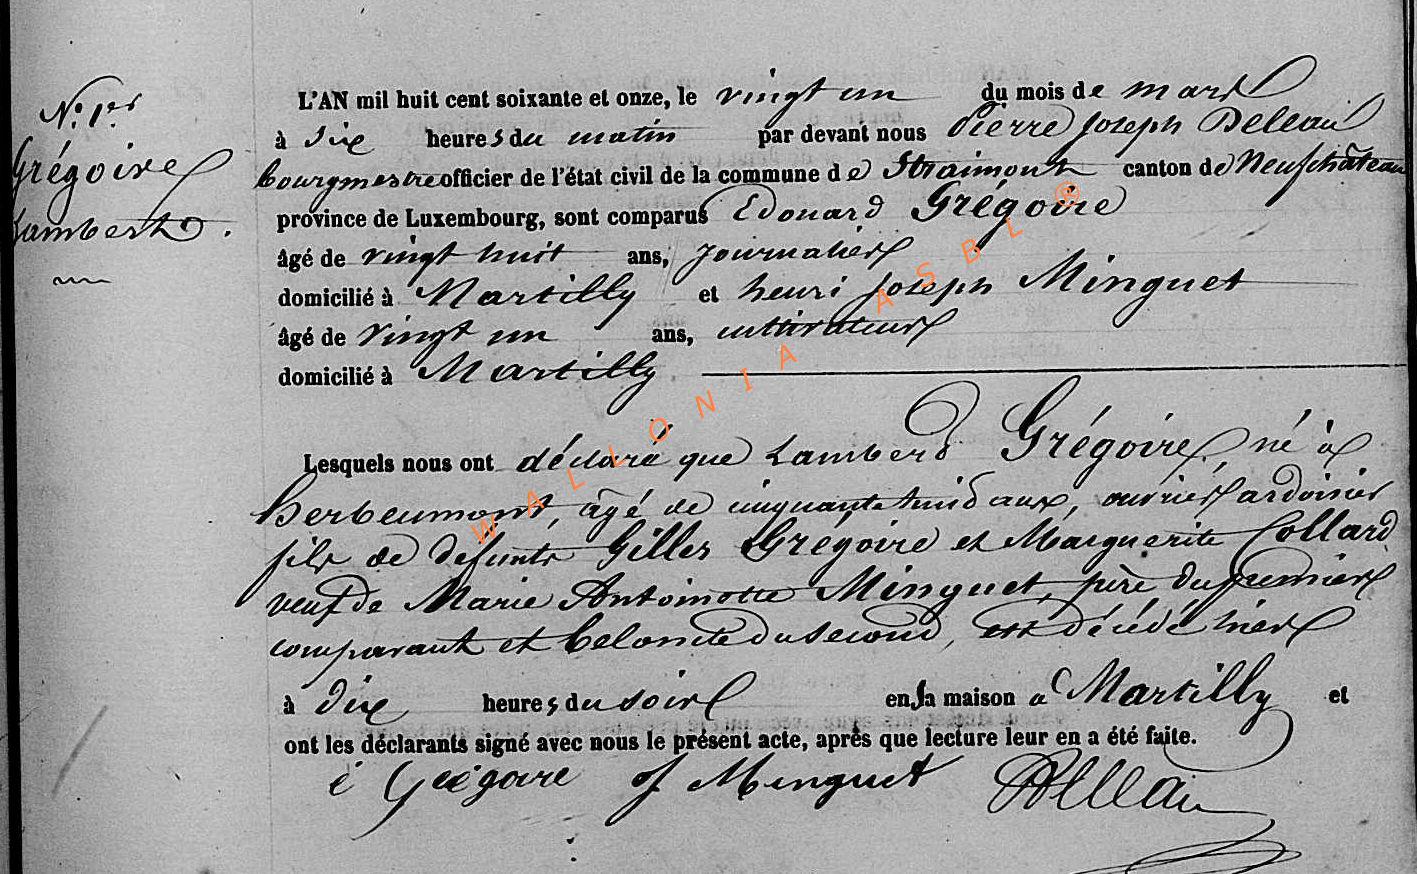 N°. 1er
Grégoire
Lambert.
L'AN mil huit cent soixante et onze, le vingt un du mois de mars
à dix heures du matin par devant nous Pierre Joseph Deleau
bourgmestre officier de l'état civil de la commune de Straimont canton de Neufchâteau
province de Luxembourg, sont comparus Edouard Grégoire
âgé de vingt huit ans, journalier
domicilié à Martilly et henri joseph Minguet
âgé de vingt un ans, cultivateur
domicilié à Martilly
Lesquels nous ont déclaré que Lamberd Grégoire, né à
Herbeumont, âgé de cinquante huid ans, ouvrier ardoisier
fils de defunts Gilles Grégoire et Marguerite Collard
veuf de Marie Antoinette Minguet, père du premier
comparant et du second, est décédé hier
à dix heures du soir en sa maison a Martilly et
ont les déclarants signé avec nous le présent acte, après que lecture leur en a été faite.
é Grégoire Minguet Deleau
WALLONIA ASBL ®